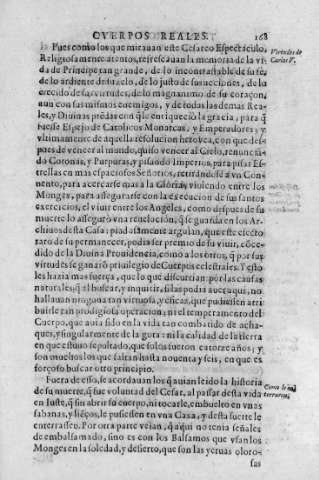 CUERPOS REALES. 168
Pues como los que mirauan este Cesareo Espectaculo,
Religiosamente atentos, refrescauan la memoria de la vi-
da de Principe tan grande, de lo incontrastable de su fè,
de lo ardiente de su zelo, de lo justo de sus acciones, de lo
crecido de sus virtudes, de lo magnanimo de su coraçon,
aun con sus mismos enemigos, y de todas las demas Rea-
les, y Diuinas prẽdas con q̃ le enriqueciò la gracia, para q̃
fuesse Espejo de Catolicos Monarcas, y Emperadores; y
vltimamente de aquella resolucion heroyca, con que des-
pues de vencer al mundo, quiso vencer al Cielo, renuncia-
do Coronas, y Purpuras, y pisando Imperios, para pisar Es-
trellas en mas espaciosos Señorios, retirandose à vn Con-
uento, para acercarse mas à la Gloria, viuiendo entre los
Monges, para assegurarse con la execucion de sus santos
exercicios, el viuir entre los Angeles, como despues de su
muerte lo assegurò vna reuelacion, q̃ se guarda en los Ar-
chiuos desta Casa: piadosamente arguian, que este efecto
raro de su permanecer, podia ser premio de su viuir, cõce-
dido de la Diuina Prouidencia, como a los otros, q̃ por sus
virtudes se ganarõ priuilegio de Cuerpos celestiales. Y esto
les hazia mas fuerça, que lo que discurrian por las causas
naturales; q̃ al buscar, è inquirir, si las podia auer aqui, no
hallauan ninguna tan virtuosa, y eficaz, que pudiessen atri-
buirle tan prodigiosa operacion; ni el temperamento del
Cuerpo, que auia sido en la vida tan combatido de acha-
ques, y singularmente de la gota: ni la calidad de la tierra
en que estuuo sepultado, que solos fueron catorze años; y
son muchos los que faltan hasta nouenta y seis, en que es
forçoso buscar otro principio.
Fuera de esso, se acordauan los q̃ auian leido la historia
de su muerte, q̃ fue voluntad del Cesar, al passar desta vida
en Iuste, q̃ sin abrir su cuerpo, ni tocarle, embuelto en vnas
sabanas, y liẽços, le pusiessen en vna Caxa, y desta suerte le
enterrassen. Por otra parte veian, q̃ aqui no tenia señales
de embalsamado, sino es con los Balsamos que vsan los
Monges en la soledad, y desierto, que son las yeruas oloro-
sas
Virtudes de
Carlos V.
Como le en-
terraron.